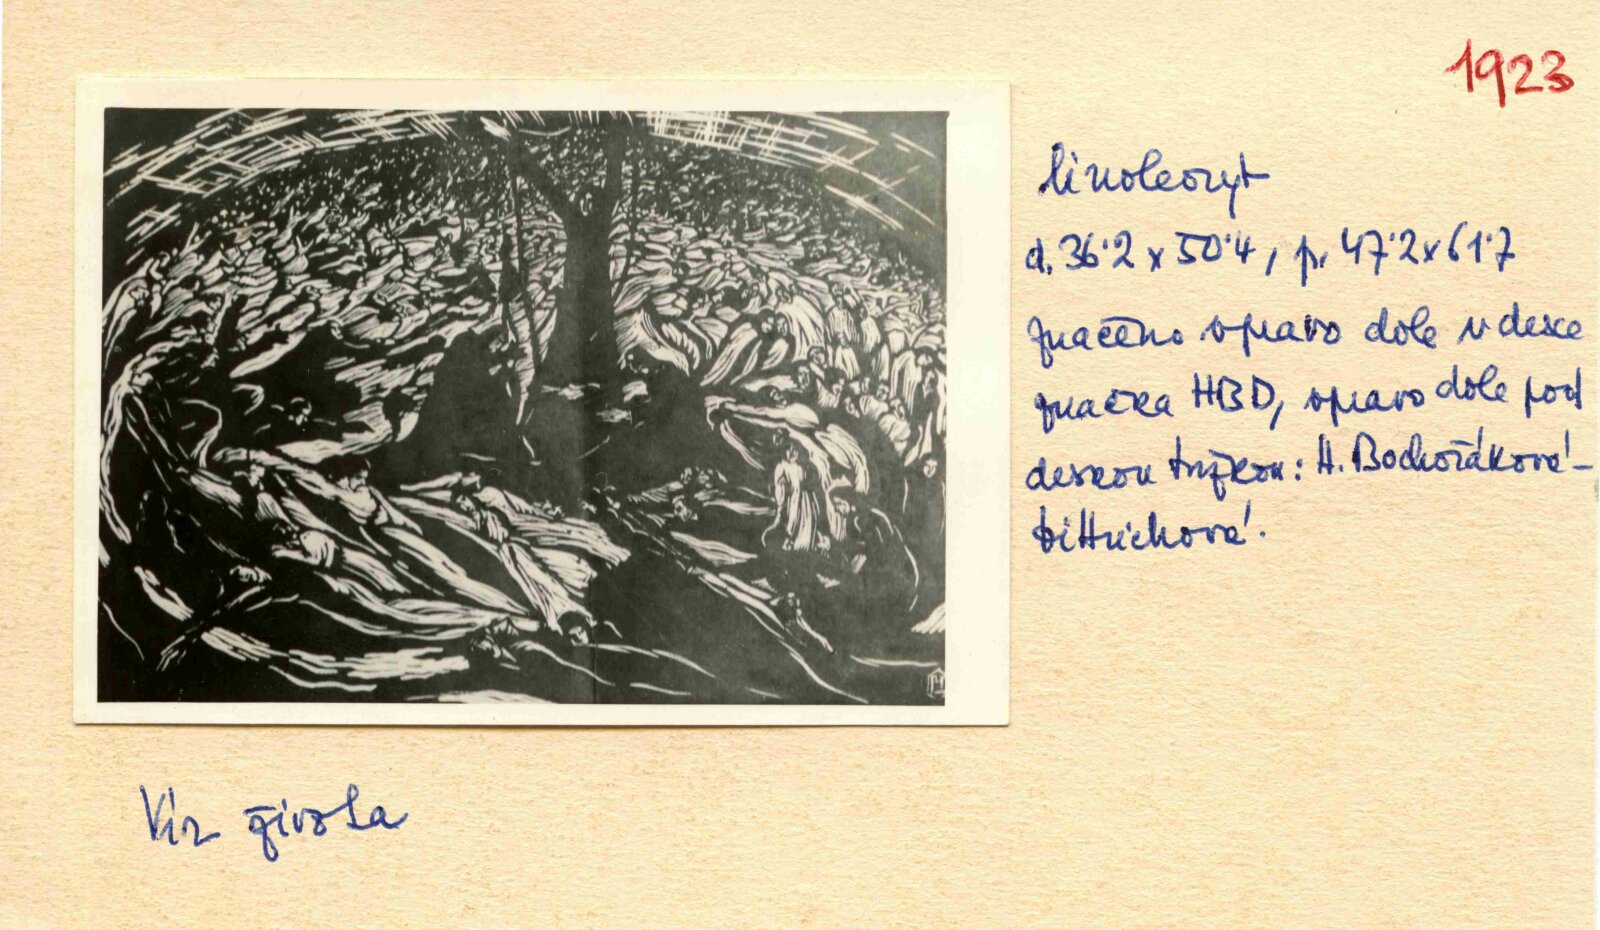 1923
linoleoryt
d. 36·2 x 50·4, p. 47·2 x 61·7
značeno vpravo dole v desce
značka HBD, vpravo dole pod
deskou tužkou: H. Bochořáková-
Dittrichová.
Vír života